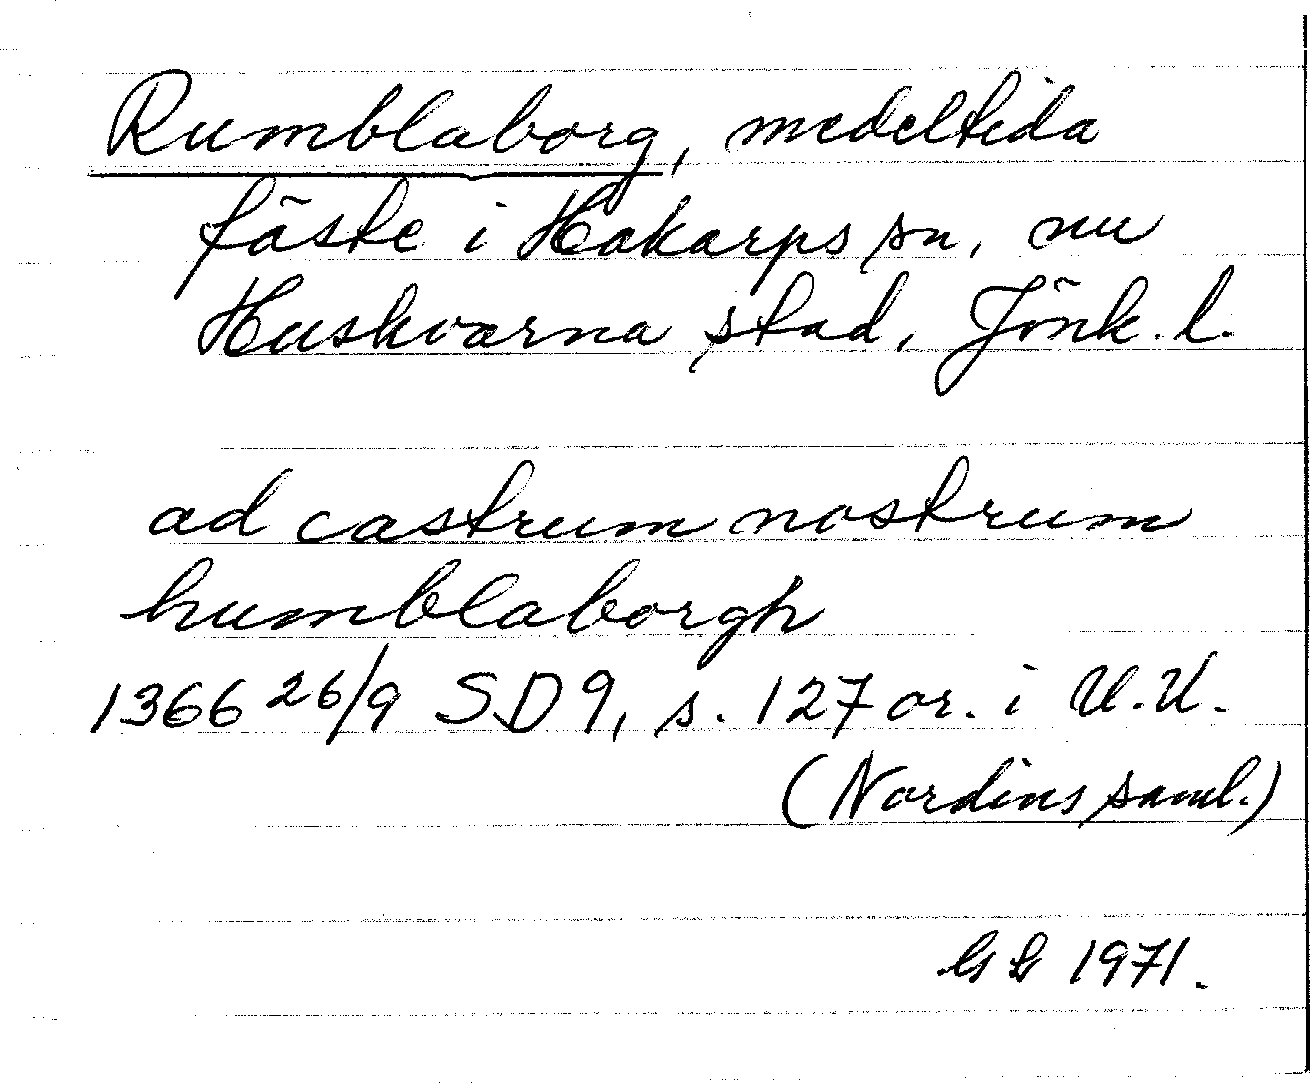 Rumblaborg, medeltida
fäste i Hakarps sn, nu
Huskvarna stad, Jönk. l.
ad castrum nostrum
humblaborgh
1366 26/9 SD 9, s. 127 or. i U.U.
(Nordins saml.)
GG 1971.